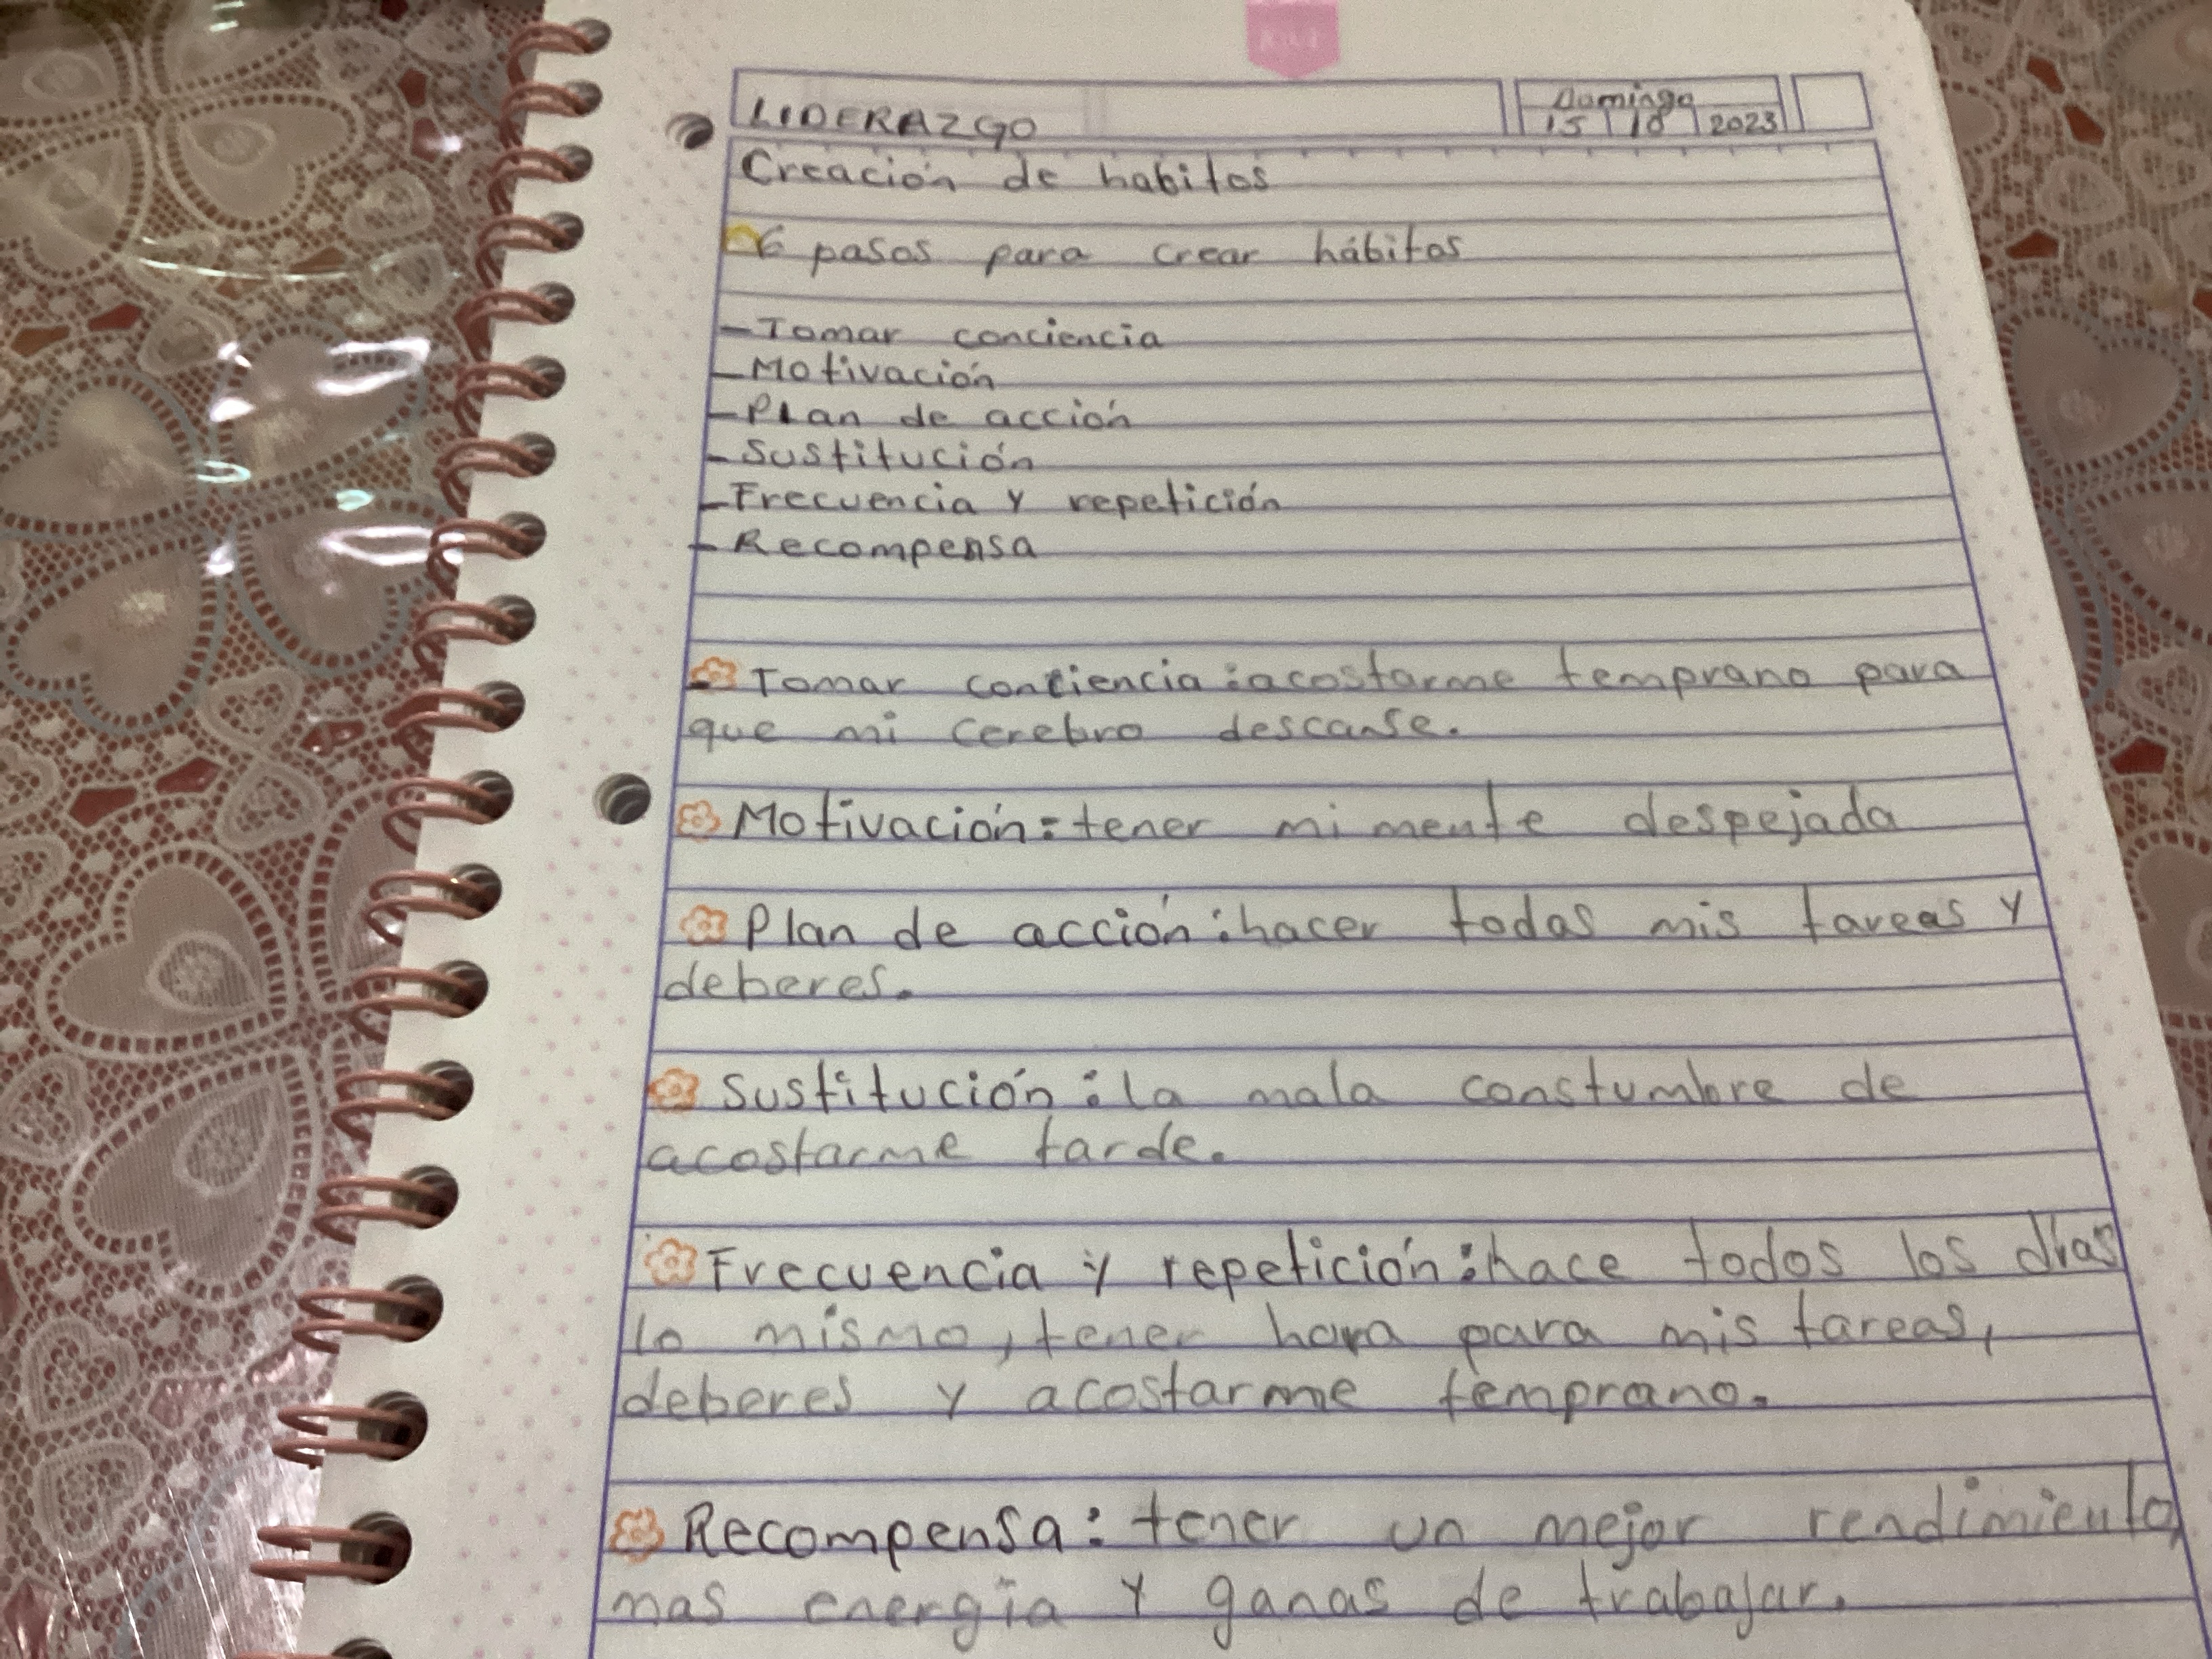 LIDERAZGO
Domingo
15 10 2023
Creación de habitos
6 pasos para crear hábitos
- Tomar conciencia
- Motivación
- Plan de acción
- Sustitución
- Frecuencia y repetición
- Recompensa
- Tomar conciencia: acostarme temprano para
que mi cerebro descanse.
Motivación: tener mi mente despejada
Plan de acción: hacer todas mis tareas y
deberes.
Sustitución: la mala constumbre de
acostarme tarde.
Frecuencia y repetición: hace todos los días
lo mismo, tener hora para mis tareas,
deberes y acostarme temprano.
Recompensa: tener un mejor rendimiento,
mas energía y ganas de trabajar.